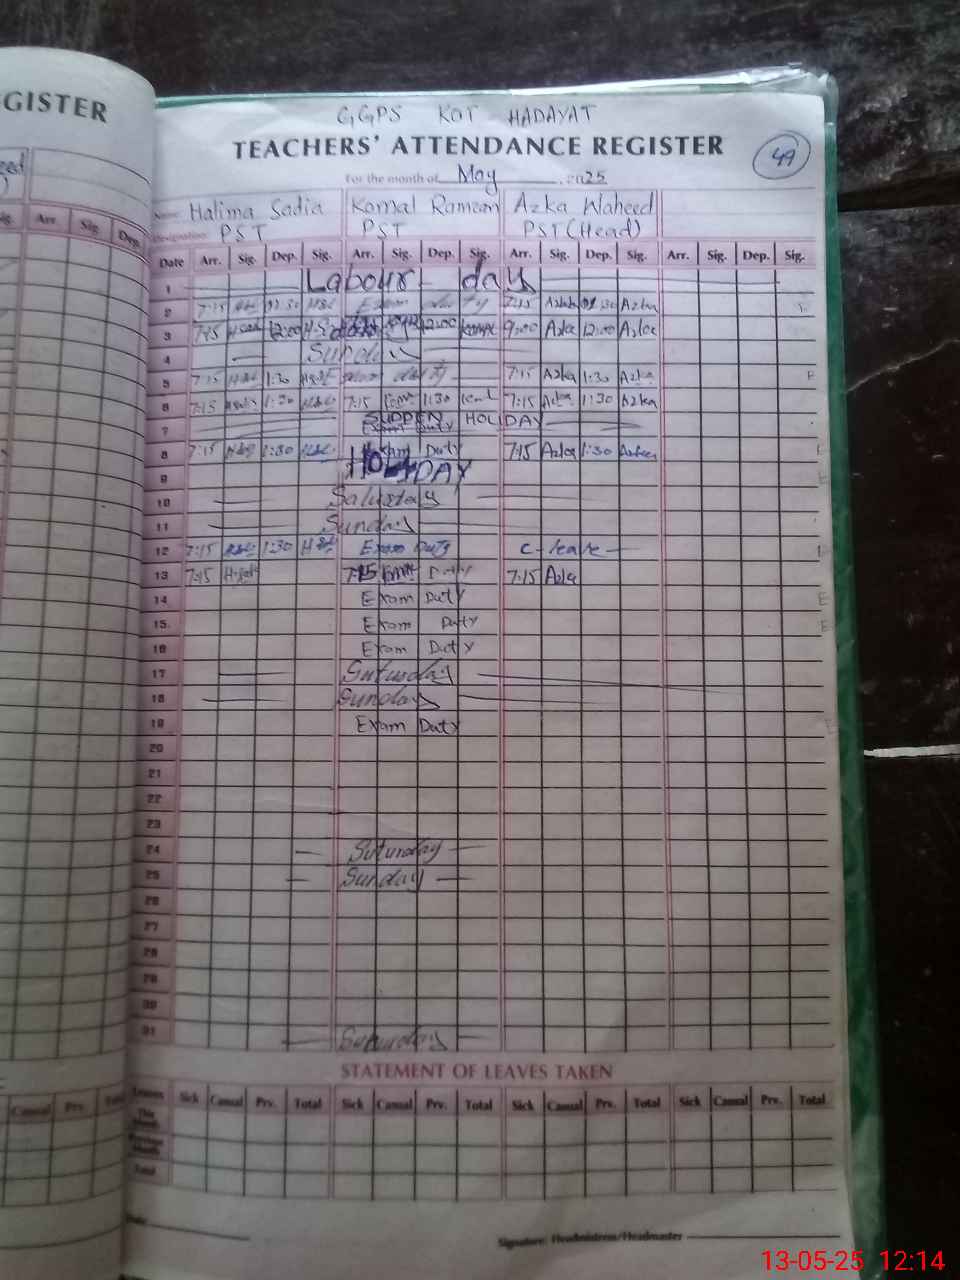 GISTER
GGPS KOT HADAYAT
TEACHERS' ATTENDANCE REGISTER
49
For the month of May 2025
Name Halima Sadia Komal Ramzan Azka Waheed
Designation PST PST PST (Head)
Arr. Sig. Dep.
Date Arr. Sig. Dep. Sig. Arr. Sig. Dep. Sig. Arr. Sig. Dep. Sig. Arr. Sig. Dep. Sig.
1 Labour day
2 7:15 Exam duty 7:15 Azka Azka
3 7:45 12:00 12:00 9:00 Azka 12:00 Azka
4 Sunday
5 7:15 1:30 Exam duty 7:15 Azka 1:30 Azka
6 7:15 1:30 7:15 1:30 7:15 Azka 1:30 Azka
7 SUDDEN HOLIDAY
Exam Duty
8 7:15 1:30 Exam Duty 7:15 Azka 1:30 Azka
9 HOLIDAY
10 Saturday
11 Sunday
12 7:15 1:30 Exam Duty C-leave
13 7:15 7:15 Duty 7:15 Azka
14 Exam Duty
15 Exam Duty
16 Exam Duty
17 Saturday
18 Sunday
19 Exam Duty
20
21
22
23
24 Suturday
25 Sunday
26
27
28
29
30
31 Suturday
STATEMENT OF LEAVES TAKEN
Casual Prv. Total
Leaves Sick Casual Prv. Total Sick Casual Prv. Total Sick Casual Prv. Total Sick Casual Prv. Total
This Month
Previous Month
Total
Date
Signature: Headmistress/Headmaster
13-05-25 12:14